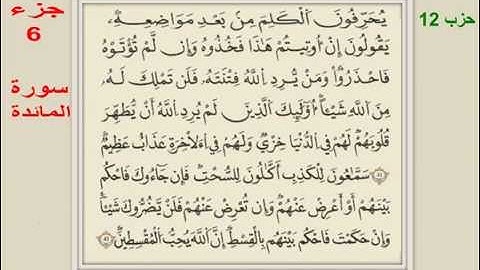 جزء
6
سورة
المائدة
حزب 12
يُحَرِّفُونَ اَ۬لْكَلِمَ مِنۢ بَعْدِ مَوَاضِعِهِۦۖ
يَقُولُونَ إِنُ ا۟وتِيتُمْ هَٰذَا فَخُذُوهُ وَإِن لَّمْ تُوتَوْهُ
فَاحْذَرُوا۟ۖ وَمَنْ يُّرِدِ اِ۬للَّهُ فِتْنَتَهُۥ فَلَن تَمْلِكَ لَهُۥ
مِنَ اَ۬للَّهِ شَيْـًٔاۖ ا۟وْلَٰٓئِكَ اَ۬لذِينَ لَمْ يُرِدِ اِ۬للَّهُ أَنْ يُّطَهِّرَ
قُلُوبَهُمْۖ لَهُمْ فِے اِ۬لدُّنْيَا خِزْيٞۖ وَلَهُمْ فِے اِ۬ءَلَاخِرَةِ عَذَابٌ عَظِيمٞۖ
سَمَّٰعُونَ لِلْكَذِبِ أَكَّٰلُونَ لِلسُّحْتِۖ فَإِن جَآءُوكَ فَاحْكُم
بَيْنَهُمُۥٓ أَوَ اَعْرِضْ عَنْهُمْۖ وَإِن تُعْرِضْ عَنْهُمْ فَلَنْ يَّضُرُّوكَ شَيْـٔاٗۖ
وَإِنْ حَكَمْتَ فَاحْكُم بَيْنَهُم بِالْقِسْطِۖ إِنَّ اَ۬للَّهَ يُحِبُّ اُ۬لْمُقْسِطِينَۖ